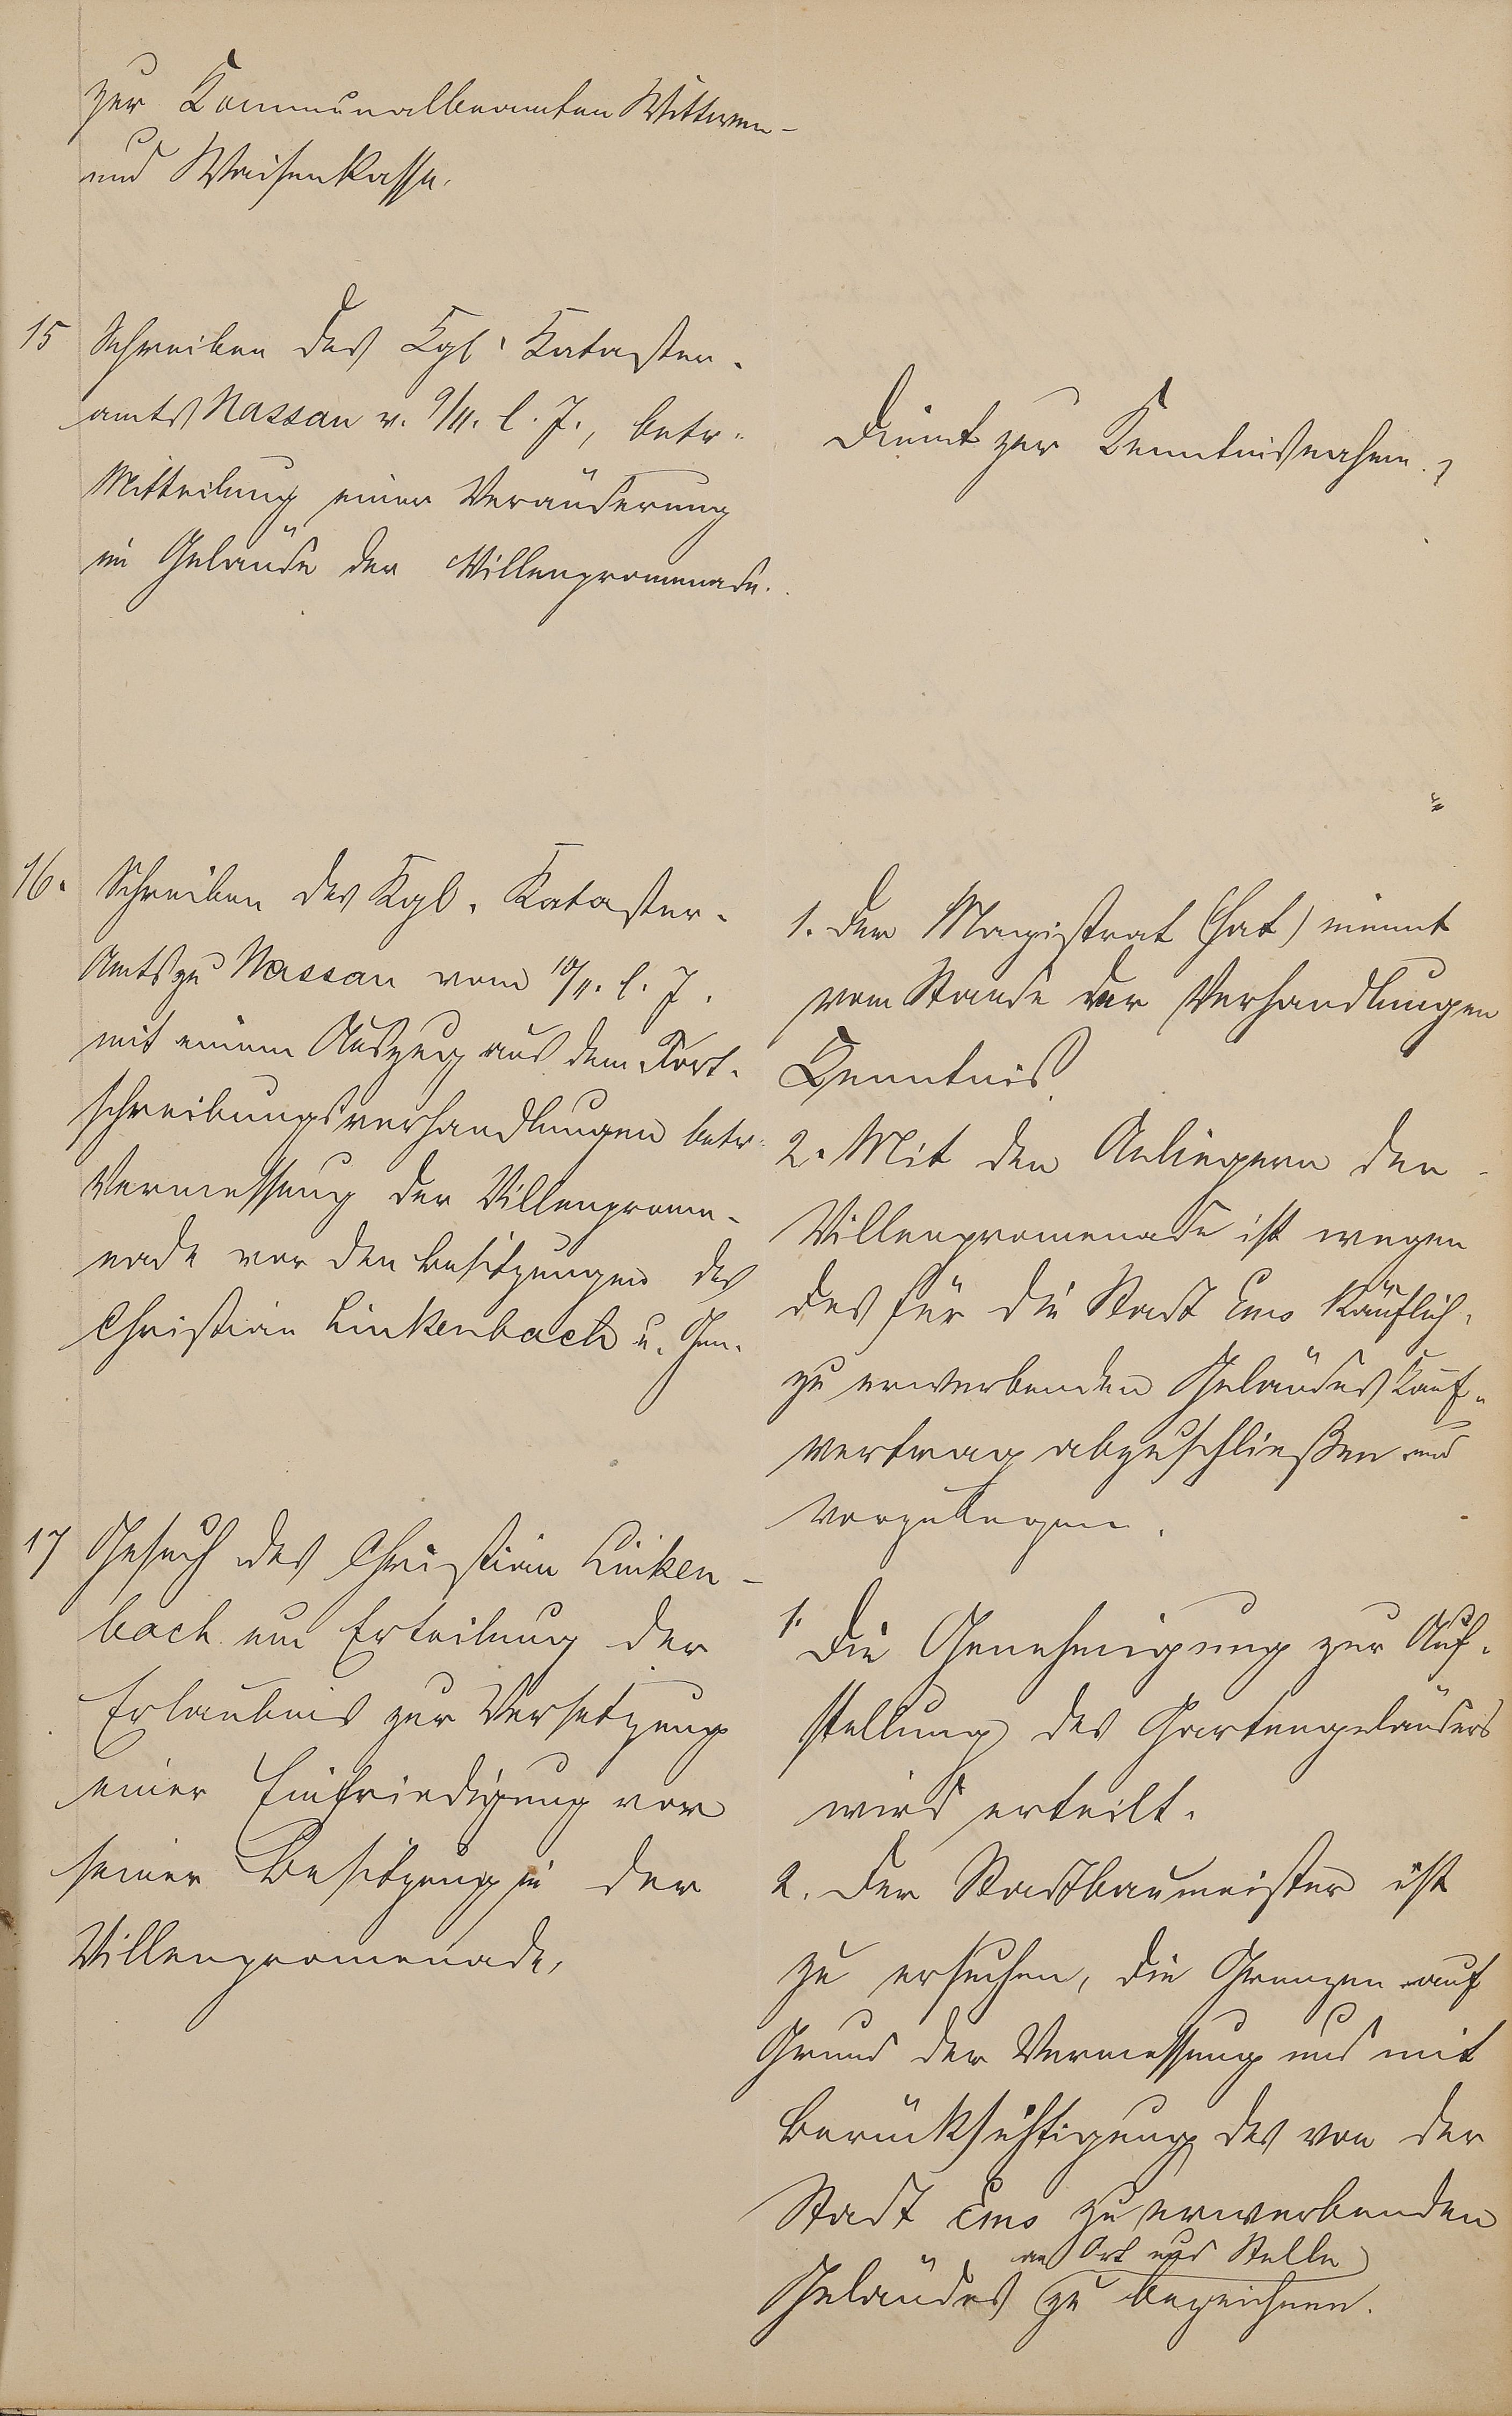 zur Kommunalbeamten Wittwen-
und Waisenkasse.
15 Schreiben des Kgl. Kataster-
amts Nassau v. 9/11. l. J., betr.
Mitteilung einer Veränderung
im Gelände der Villenpromenade.
Dient zur Kenntnisnahme.
16. Schreiben des Kgl. Kataster-
Amts zu Nassau vom 10/11. l. J.
mit einem Auszug aus dem Fort-
schreibungsverhandlungen betr.
Vermessung der Villenprome-
nade vor den Besitzungen des
Christian Linkenbach u. Gen.
1. Der Magistrat (hat) nimmt
vom Stande der Verhandlungen
Kenntnis
2. Mit den Anliegern der
Villenpromenade ist wegen
des für die Stadt Ems käuflich
zu erwerbenden Geländes Kauf-
vertrag abzuschließen und
vorzulegen.
17 Gesuch des Christian Linken-
bach um Erteilung der
Erlaubnis zur Versetzung
einer Einfriedigung vor
seiner Besitzung in der
Villenpromenade.
1. Die Genehmigung zur Auf-
stellung des Gartengeländers
wird erteilt.
2. Der Stadtbaumeister ist
zu ersuchen, die Grenzen auf
Grund der Vermessung und mit
Berücksichtigung des von der
Stadt Ems zu erwerbenden
an Ort und Stelle
Geländes zu bezeichnen.